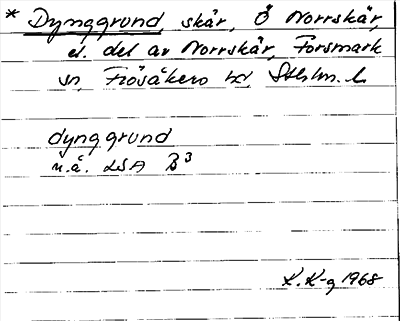 * Dynggrund, skär, Ö Norrskär,
el. del av Norrskär, Forsmark
sn, Frösåkers hd, Sthlm. l.
dynggrund
u.å. LSA B³
K. K-g 1968